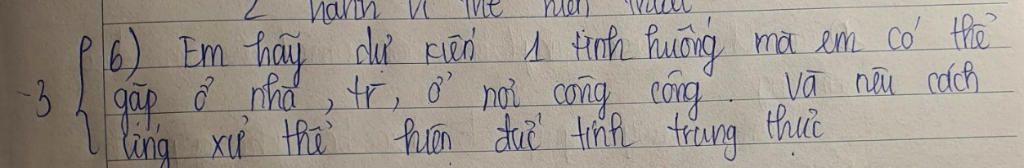 2 hành vi thể hiện
6) Em hãy dự kiến 1 tình huống mà em có thể
-3 gặp ở nhà, tr, ở nơi công cộng. Và nêu cách
ứng xử thể hiện đức tính trung thực